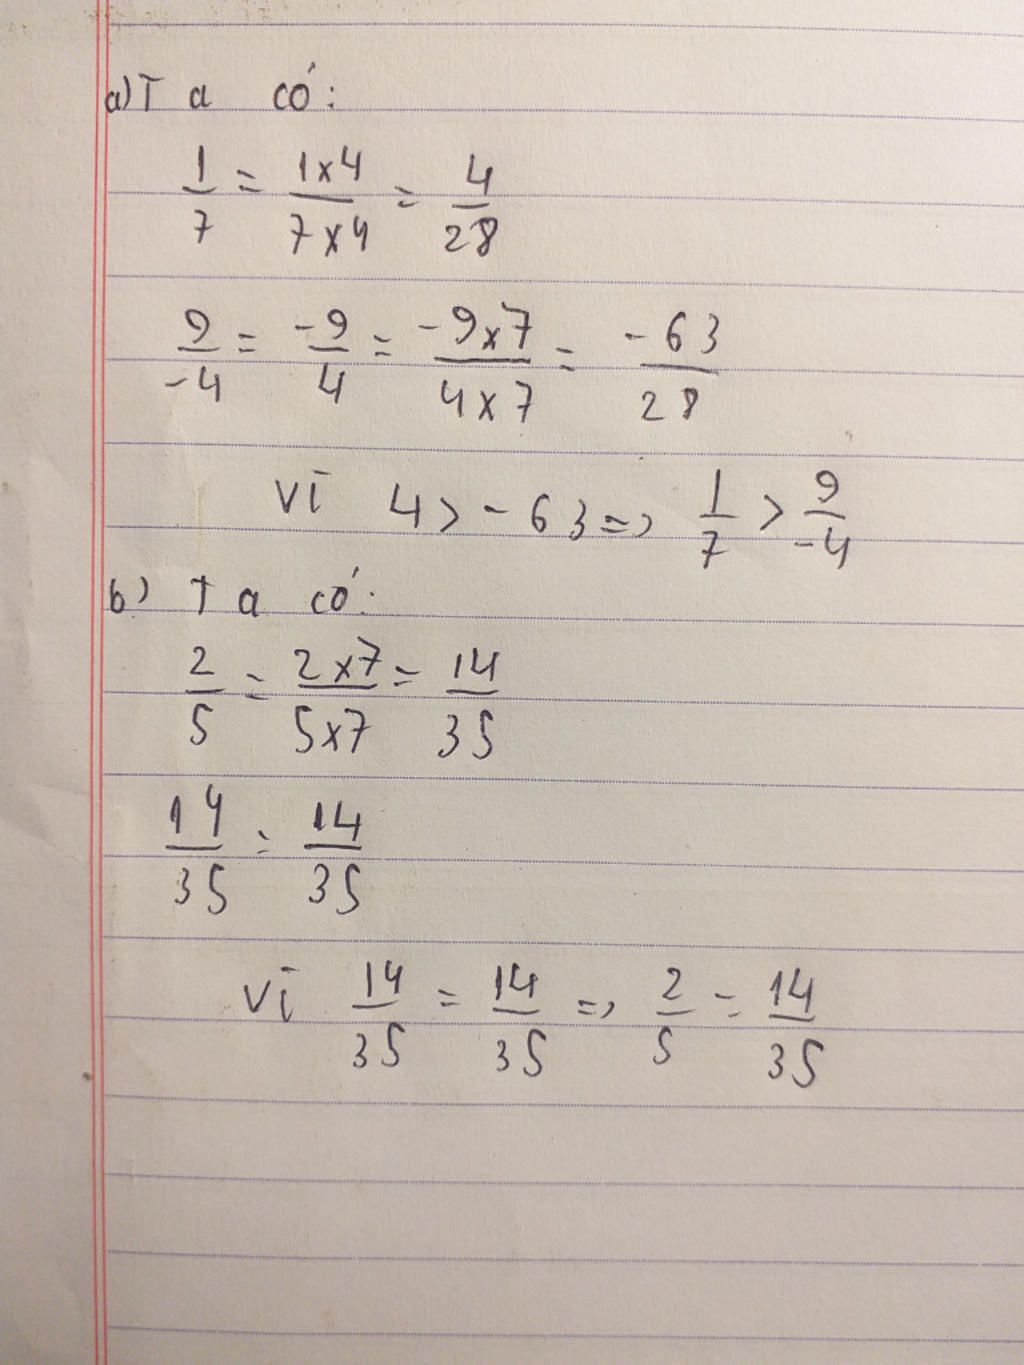 a) Ta có:
1/7 = 1x4/7x4 = 4/28
9/-4 = -9/4 = -9x7/4x7 = -63/28
Vì 4 > -63 => 1/7 > 9/-4
b) Ta có:
2/5 = 2x7/5x7 = 14/35
14/35 = 14/35
Vì 14/35 = 14/35 => 2/5 = 14/35